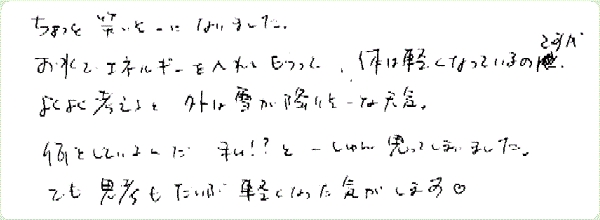 ちょっと 笑いそーになりました。
お水で エネルギーを入れて もらって、体は軽くなっているのですが
よくよく考えると 外は雪が降りそーな天気。
何をしているんだ 私!?と 一しゅん思ってしまいました。
でも 思考も だいぶ 軽くなった 気がします♡